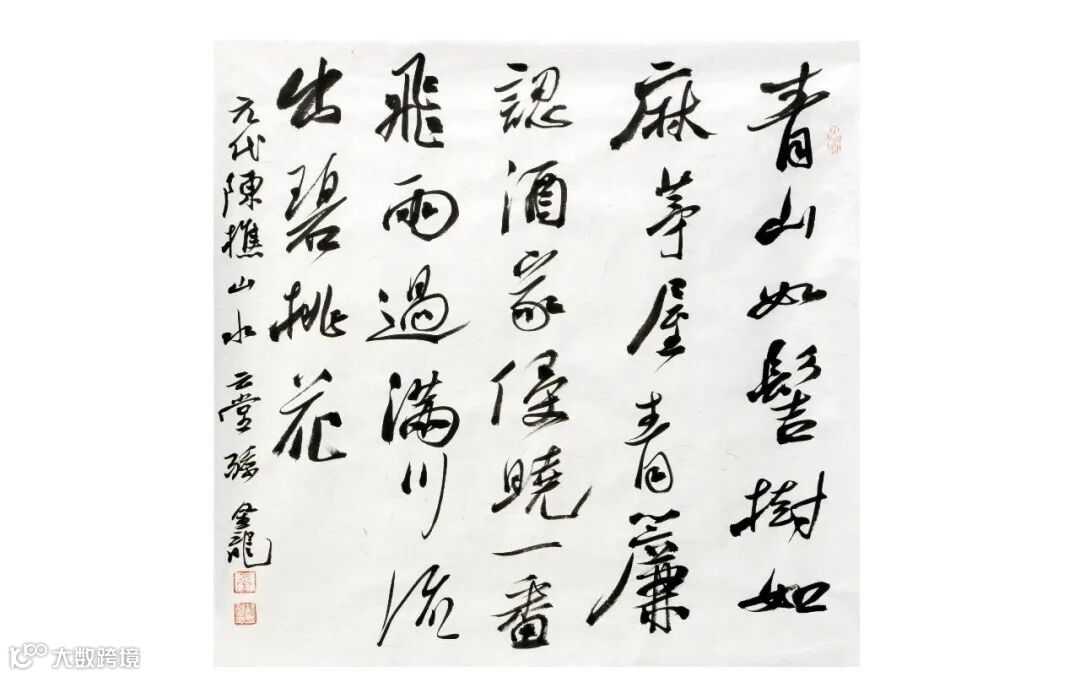 青山如髻樹如
麻茅屋青簾
認酒家侵曉一番
飛雨過滿川流
出碧桃花
元代陳樵山水 云堂 孫金龍
大数跨境